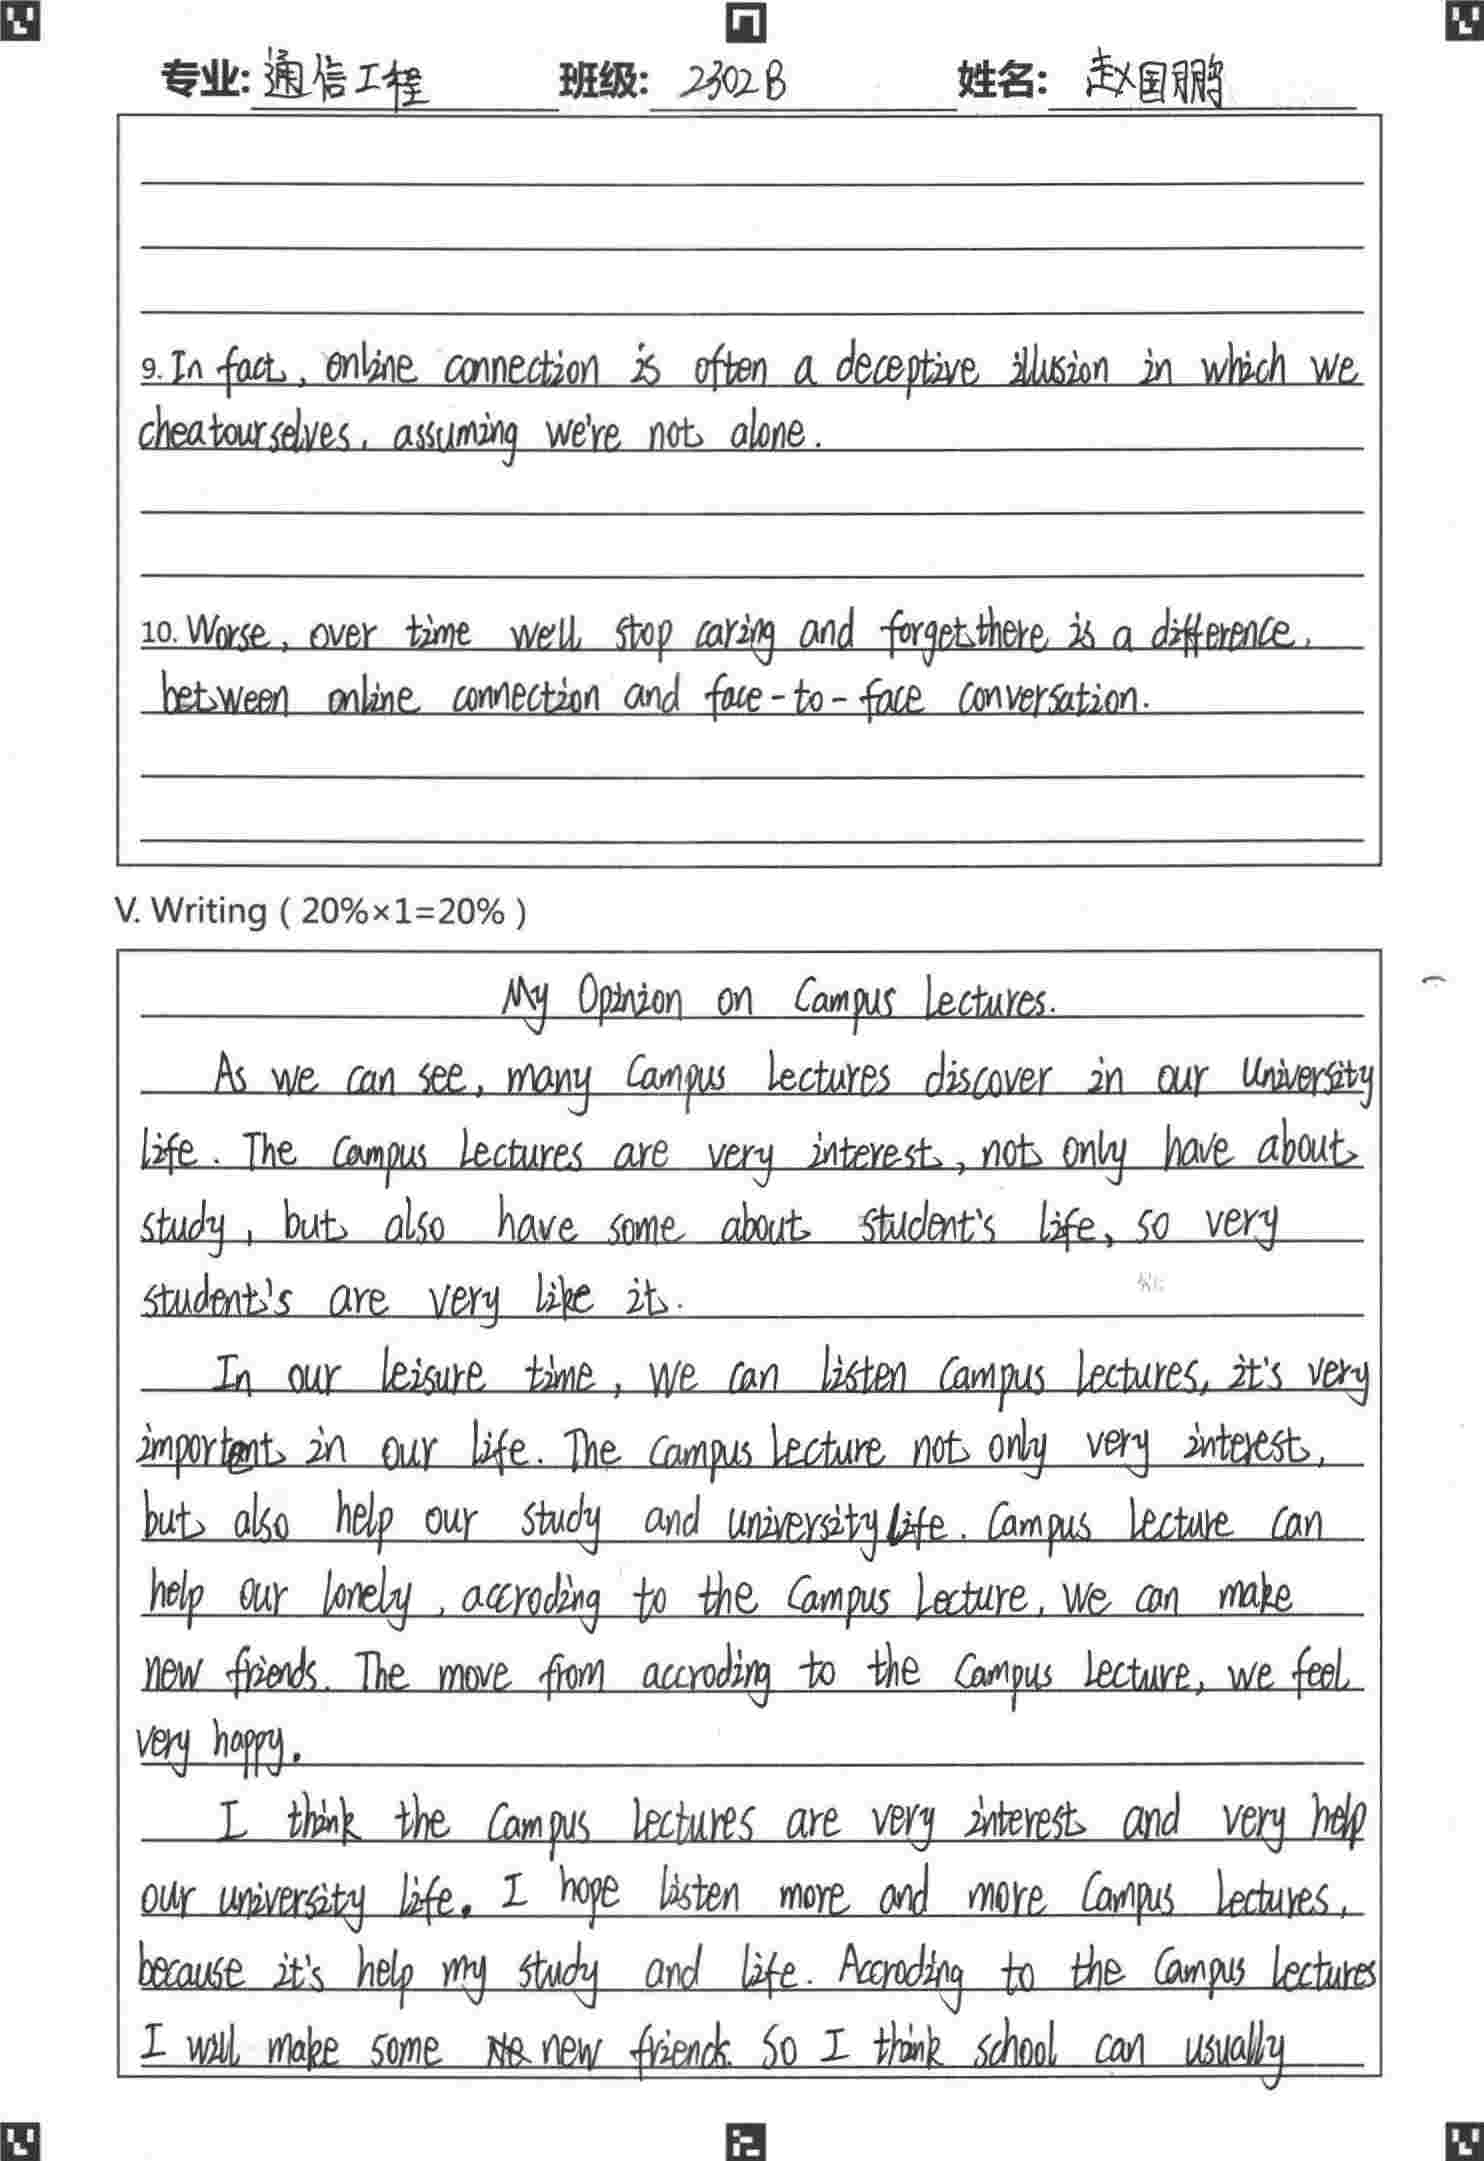 专业: 通信工程 班级: 2302B 姓名: 赵国鹏
9. In fact, online connection is often a deceptive illusion in which we
cheatourselves, assuming we're not alone.
10. Worse, over time we'll stop caring and forget there is a difference,
between online connection and face-to-face conversation.
V. Writing ( 20%×1=20% )
My Opinion on Campus Lectures.
As we can see, many Campus Lectures discover in our University
life. The Campus Lectures are very interest, not only have about
study, but also have some about student's life, so very
student's are very like it.
In our leisure time, we can listen Campus Lectures, it's very
important in our life. The Campus Lecture not only very interest,
but also help our study and university life. Campus Lecture can
help our lonely, accroding to the Campus Lecture, we can make
new friends. The move from accroding to the Campus Lecture, we feel
very happy.
I think the Campus Lectures are very interest and very help
our university life. I hope listen more and more Campus Lectures,
because it's help my study and life. Accroding to the Campus Lectures
I will make some new friends. So I think school can usually